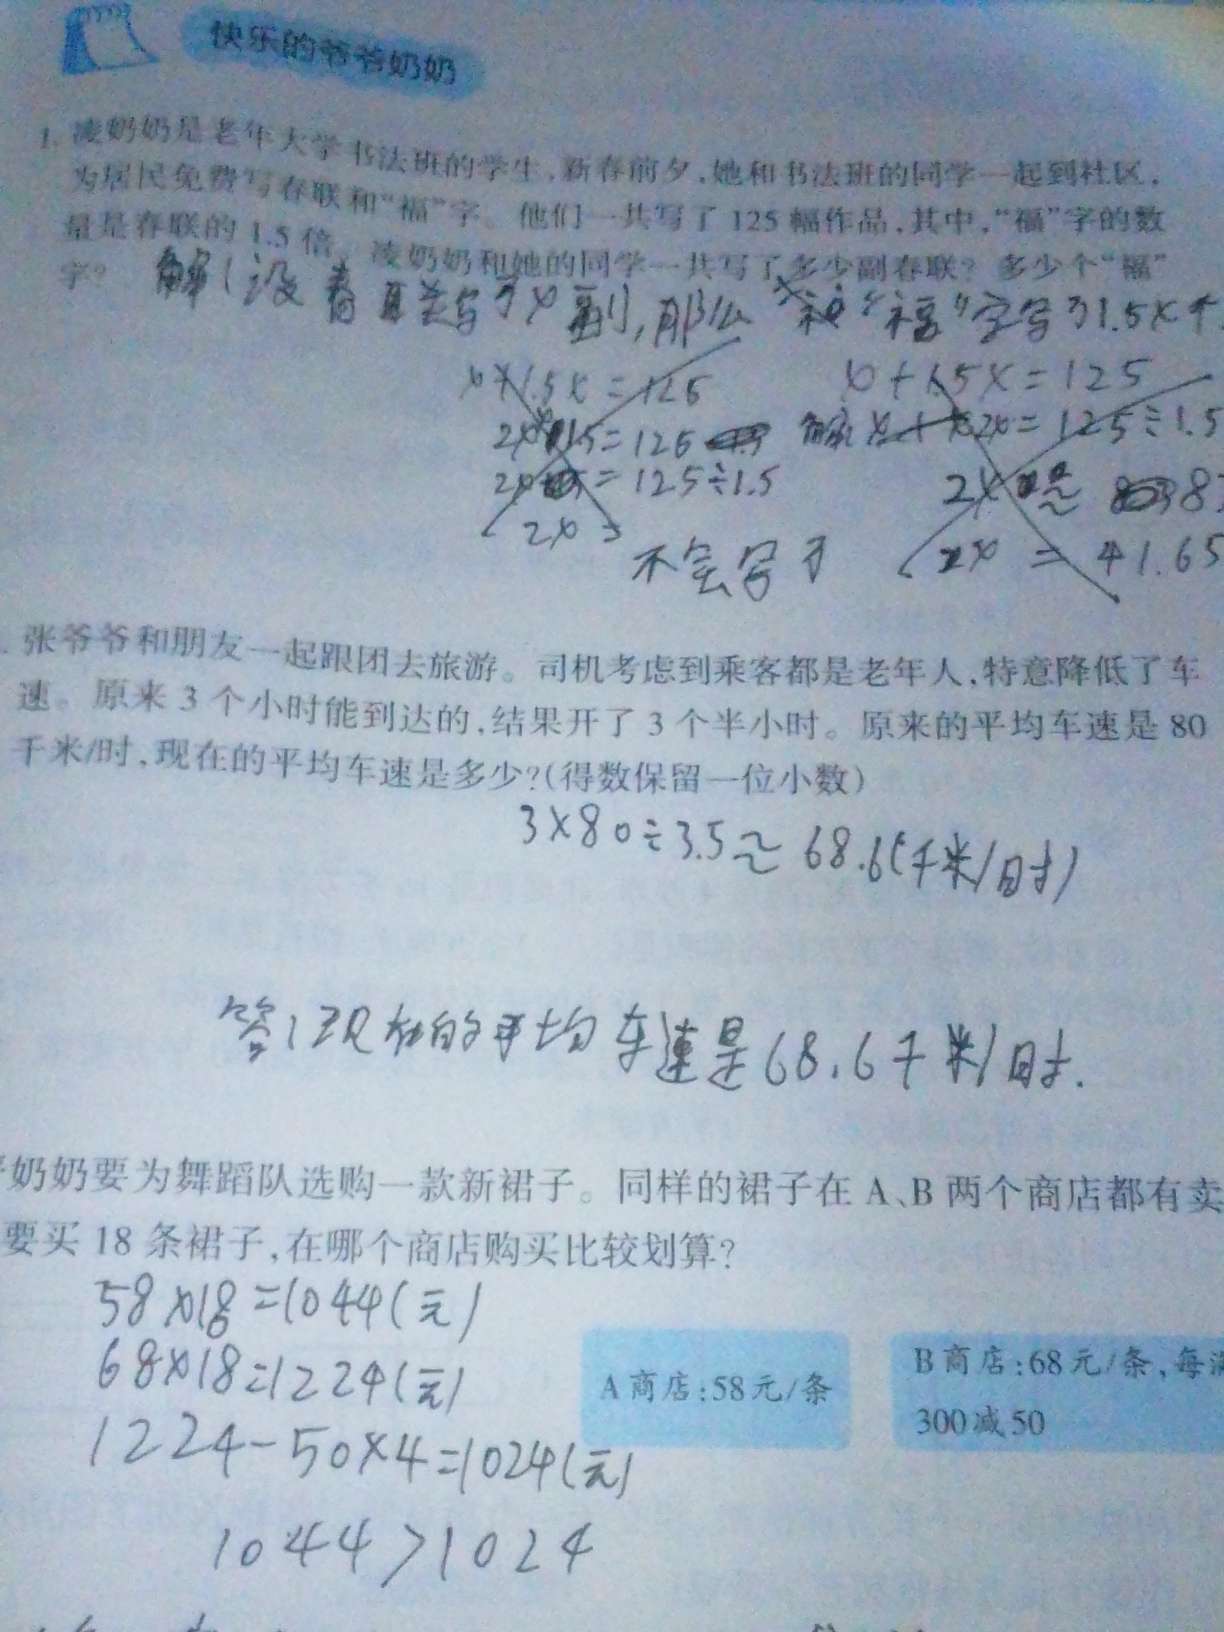 快乐的爷爷奶奶
1. 凌奶奶是老年大学书法班的学生,新春前夕,她和书法班的同学一起到社区,
为居民免费写春联和“福”字。他们一共写了 125 幅作品,其中,“福”字的数
量是春联的 1.5 倍。凌奶奶和她的同学一共写了多少副春联?多少个“福”
字?
解:设春联写了x副,那么“福”字写了1.5x个
x+1.5x=125
x+1.5x=125
=125÷1.5
2x=125÷1.5
2x=
2x=41.65
不会写了
张爷爷和朋友一起跟团去旅游。司机考虑到乘客都是老年人,特意降低了车
速。原来 3 个小时能到达的,结果开了 3 个半小时。原来的平均车速是 80
千米/时,现在的平均车速是多少?(得数保留一位小数)
3×80÷3.5≈68.6(千米/时)
答:现在的平均车速是68.6千米/时.
奶奶要为舞蹈队选购一款新裙子。同样的裙子在 A、B 两个商店都有卖
要买 18 条裙子,在哪个商店购买比较划算?
58×18=1044(元)
68×18=1224(元)
A 商店:58元/条
B 商店:68 元/条,每满
300减50
1224-50×4=1024(元)
1044>1024